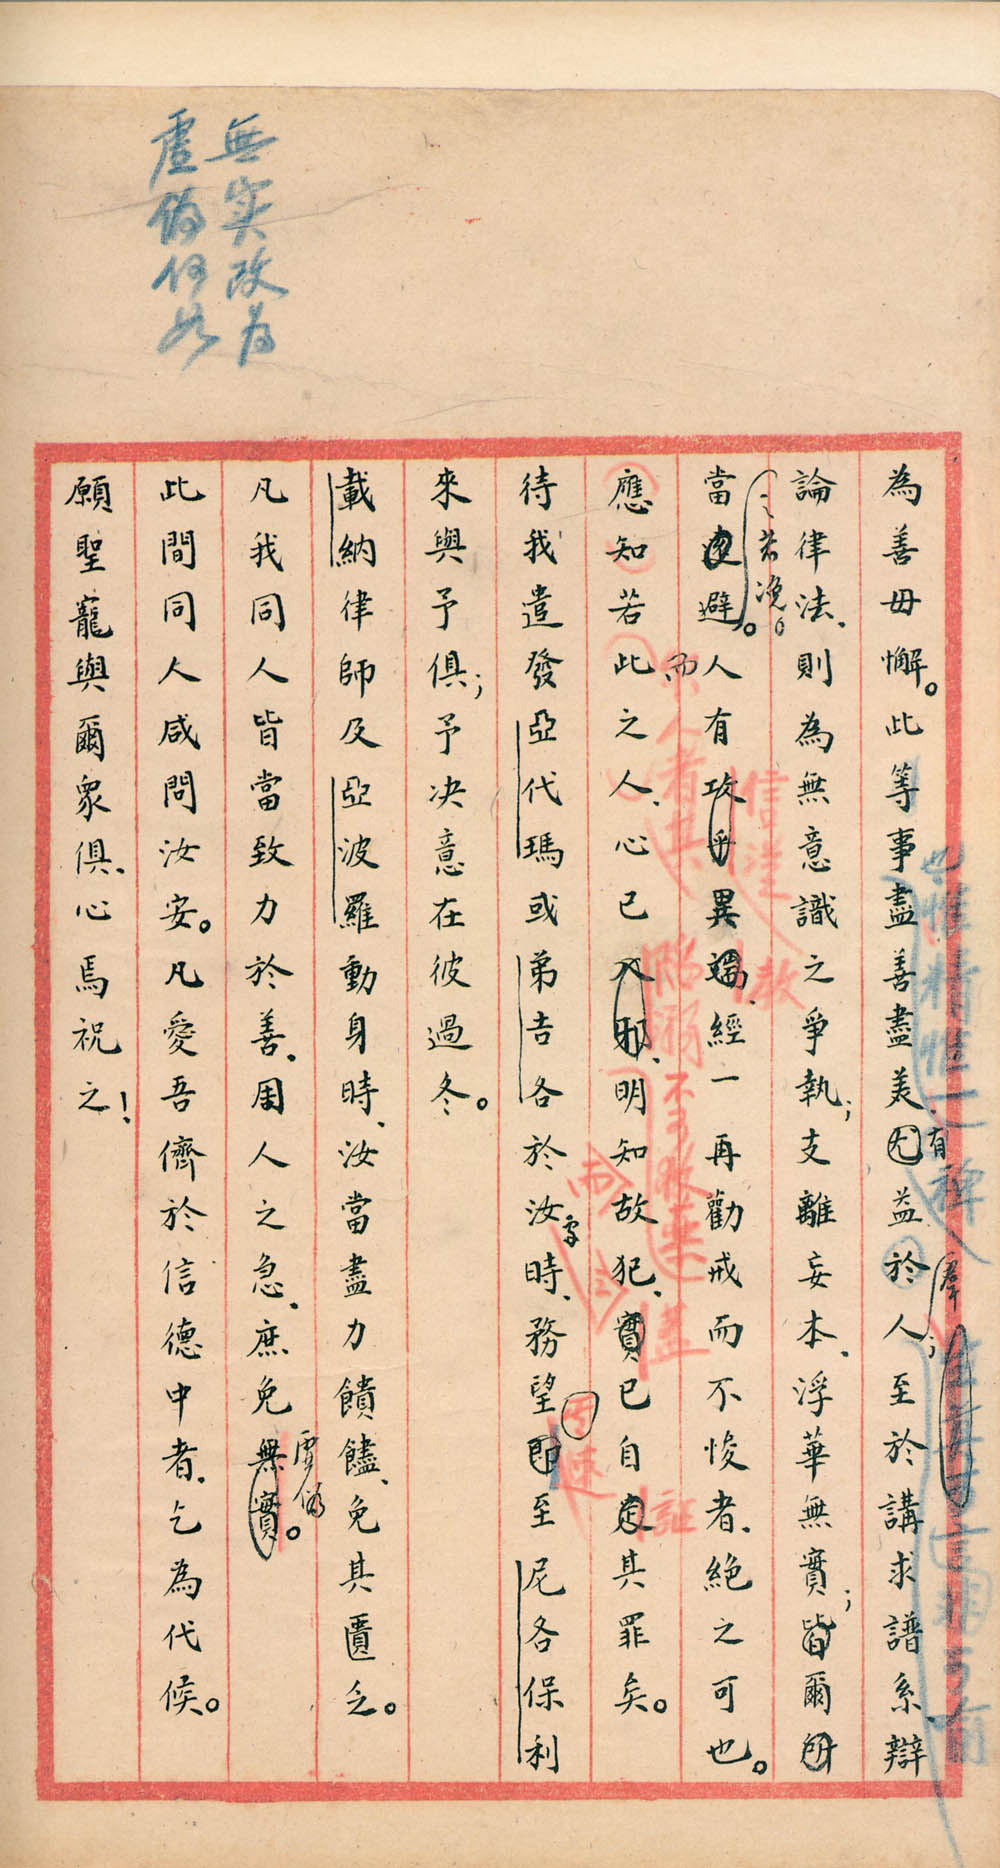 無实改为
虛偽何如
為善毋懈。此等事盡善盡美、尤益於人；至於講求譜系、辯
有
羣
論律法、則為無意識之爭執；支離妄本、浮華無實；皆爾所
當速避。人有攻乎異端、經一再勸戒而不悛者、絕之可也。
應知若此之人、心已入邪、明知故犯、實已自定其罪矣。
而
待我遣發亞代瑪或弟吉各於汝時、務望即至尼各保利
處
來與予俱；予決意在彼過冬。
載納律師及亞波羅動身時、汝當盡力饋饁、免其匱乏。
凡我同人皆當致力於善、周人之急、庶免無實。
虛偽
此間同人咸問汝安。凡愛吾儕於信德中者、乞為代候。
願聖寵與爾眾俱、心焉祝之！